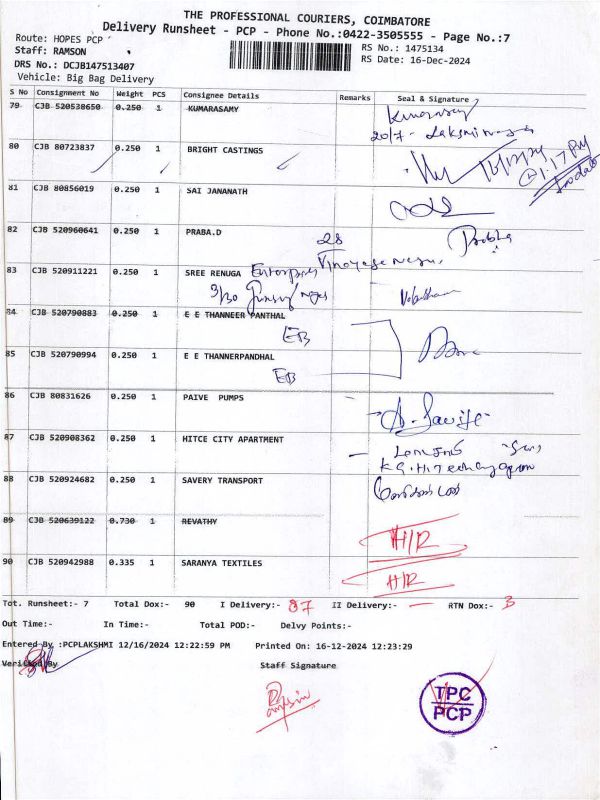 THE PROFESSIONAL COURIERS, COIMBATORE
Delivery Runsheet - PCP - Phone No.:0422-3505555 - Page No.:7
Route: HOPES PCP
RS No.: 1475134
Staff: RAMSON
RS Date: 16-Dec-2024
DRS No.: DCJB147513407
Vehicle: Big Bag Delivery
S No Consignment No Weight PCS Consignee Details Remarks Seal & Signature
79 CJB 520538650 0.250 1 KUMARASAMY
Kumarasamy
20/7 -
80 CJB 80723837 0.250 1 BRIGHT CASTINGS
16/12/24
@ 1.17 PM
81 CJB 80856019 0.250 1 SAI JANANATH
82 CJB 520960641 0.250 1 PRABA.D
28
Prabha
Vinayaga Nagar,
83 CJB 520911221 0.250 1 SREE RENUGA Enterprises
3/30
84 CJB 520790883 0.250 1 E E THANNEER PANTHAL
EB
85 CJB 520790994 0.250 1 E E THANNERPANDHAL
EB
86 CJB 80831626 0.250 1 PAIVE PUMPS
87 CJB 520908362 0.250 1 HITCE CITY APARTMENT
88 CJB 520924682 0.250 1 SAVERY TRANSPORT
89 CJB 520639122 0.730 1 REVATHY
H/R
90 CJB 520942988 0.335 1 SARANYA TEXTILES
H/R
Tot. Runsheet:- 7 Total Dox:- 90 I Delivery:- 87 II Delivery:- — RTN Dox:- 3
Out Time:- In Time:- Total POD:- Delvy Points:-
Entered By :PCPLAKSHMI 12/16/2024 12:22:59 PM Printed On: 16-12-2024 12:23:29
Verified By Staff Signature
TPC
PCP